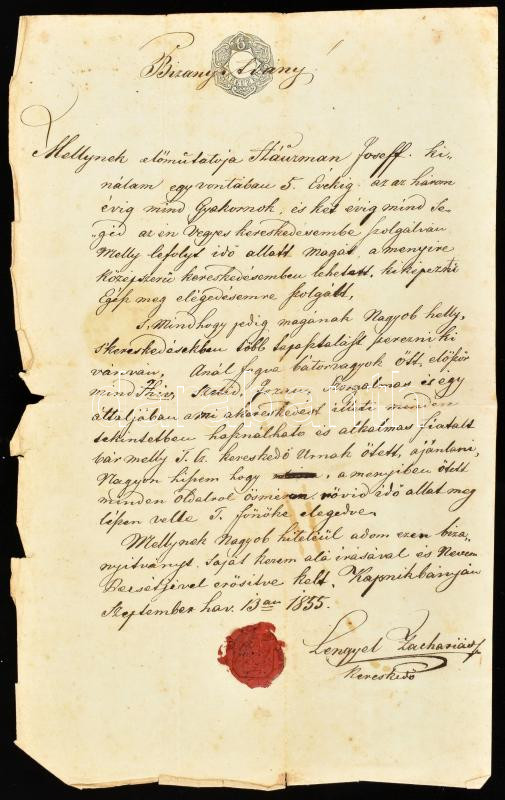 Bizonyitvány
Mellynek előmutatója Stäuzman Joseff. ki-
nálam egy vontában 5. Evekig. az az három
évig mind Gyakornok, és két évig mind Se-
géd az én Vegyes kereskedésembe szolgálván
Melly lefolyt idő allatt magát, a menyire
közepszerű kereskedésemben lehetett, kiképezni
Egész meg elégedésemre szolgált,
S. Mindhogy pedig magának Nagyob helly,
s kereskedésekben több tapasztalást szerezni ki
vánván, Anál fogva bátor vagyok ött, először
mind Hiv, Szelid, Jozan, Szorgalmas és így
általjában a mi a kereskedést illeti minden
tekintetben használható és alkalmas fiatalt
bár melly T. t. kereskedő Urnak ötett, ajánlani,
Nagyon hiszem hogy , a menyiben ötett
minden oldalrol ösmerem rövid idő allat meg
lészen velte T. főnöke elegedve.
Mellynek Nagyob hiteleül adom ezen biza-
nyitványt. Saját kezem alá irásával és Nevem
Persétjével erősitve kelt. Kapnikbányán
September hav. 13an 1855.
Lengyel Zachariás
kereskedő